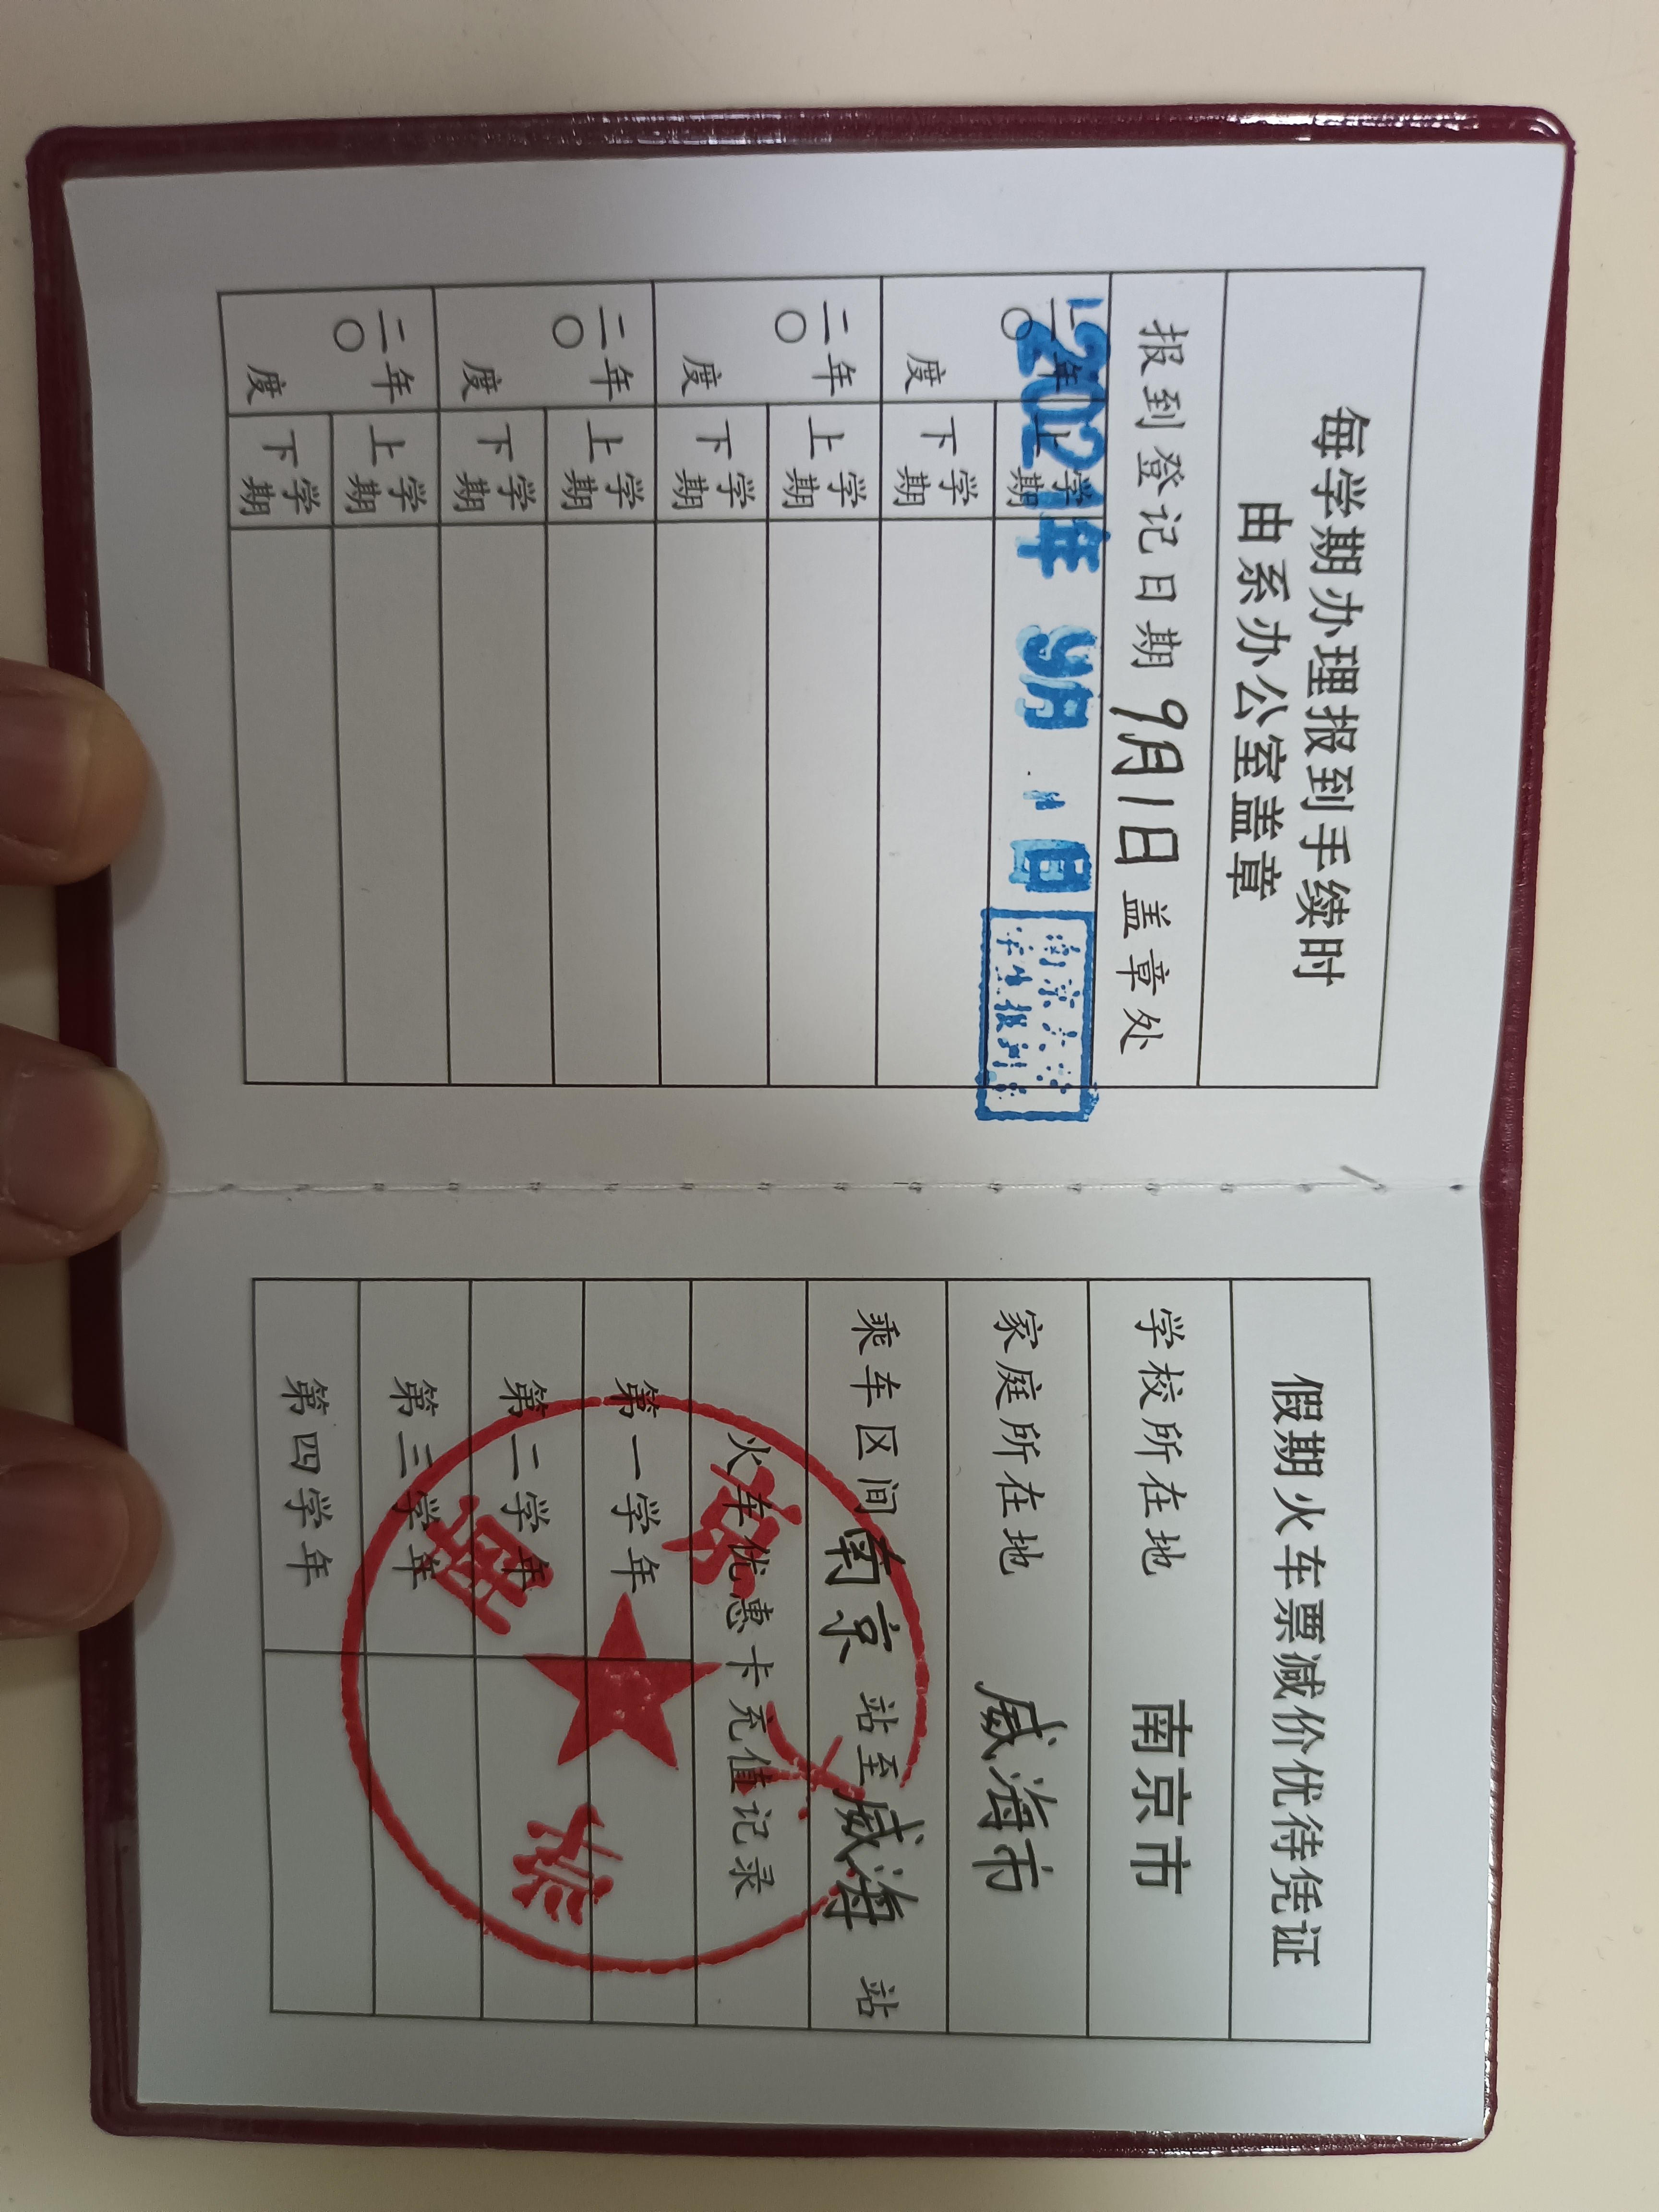 每学期办理报到手续时
由系办公室盖章
报到登记日期 9月1日 盖章处
二〇 年度 上学期
2021年 9月 日
学生报到
下学期
二〇 年度 上学期
下学期
二〇 年度 上学期
下学期
二〇 年度 上学期
下学期
假期火车票减价优待凭证
学校所在地 南京市
家庭所在地 威海市
乘车区间 南京 站至 威海 站
火车优惠卡充值记录
第一学年
第二学年
第三学年
第四学年